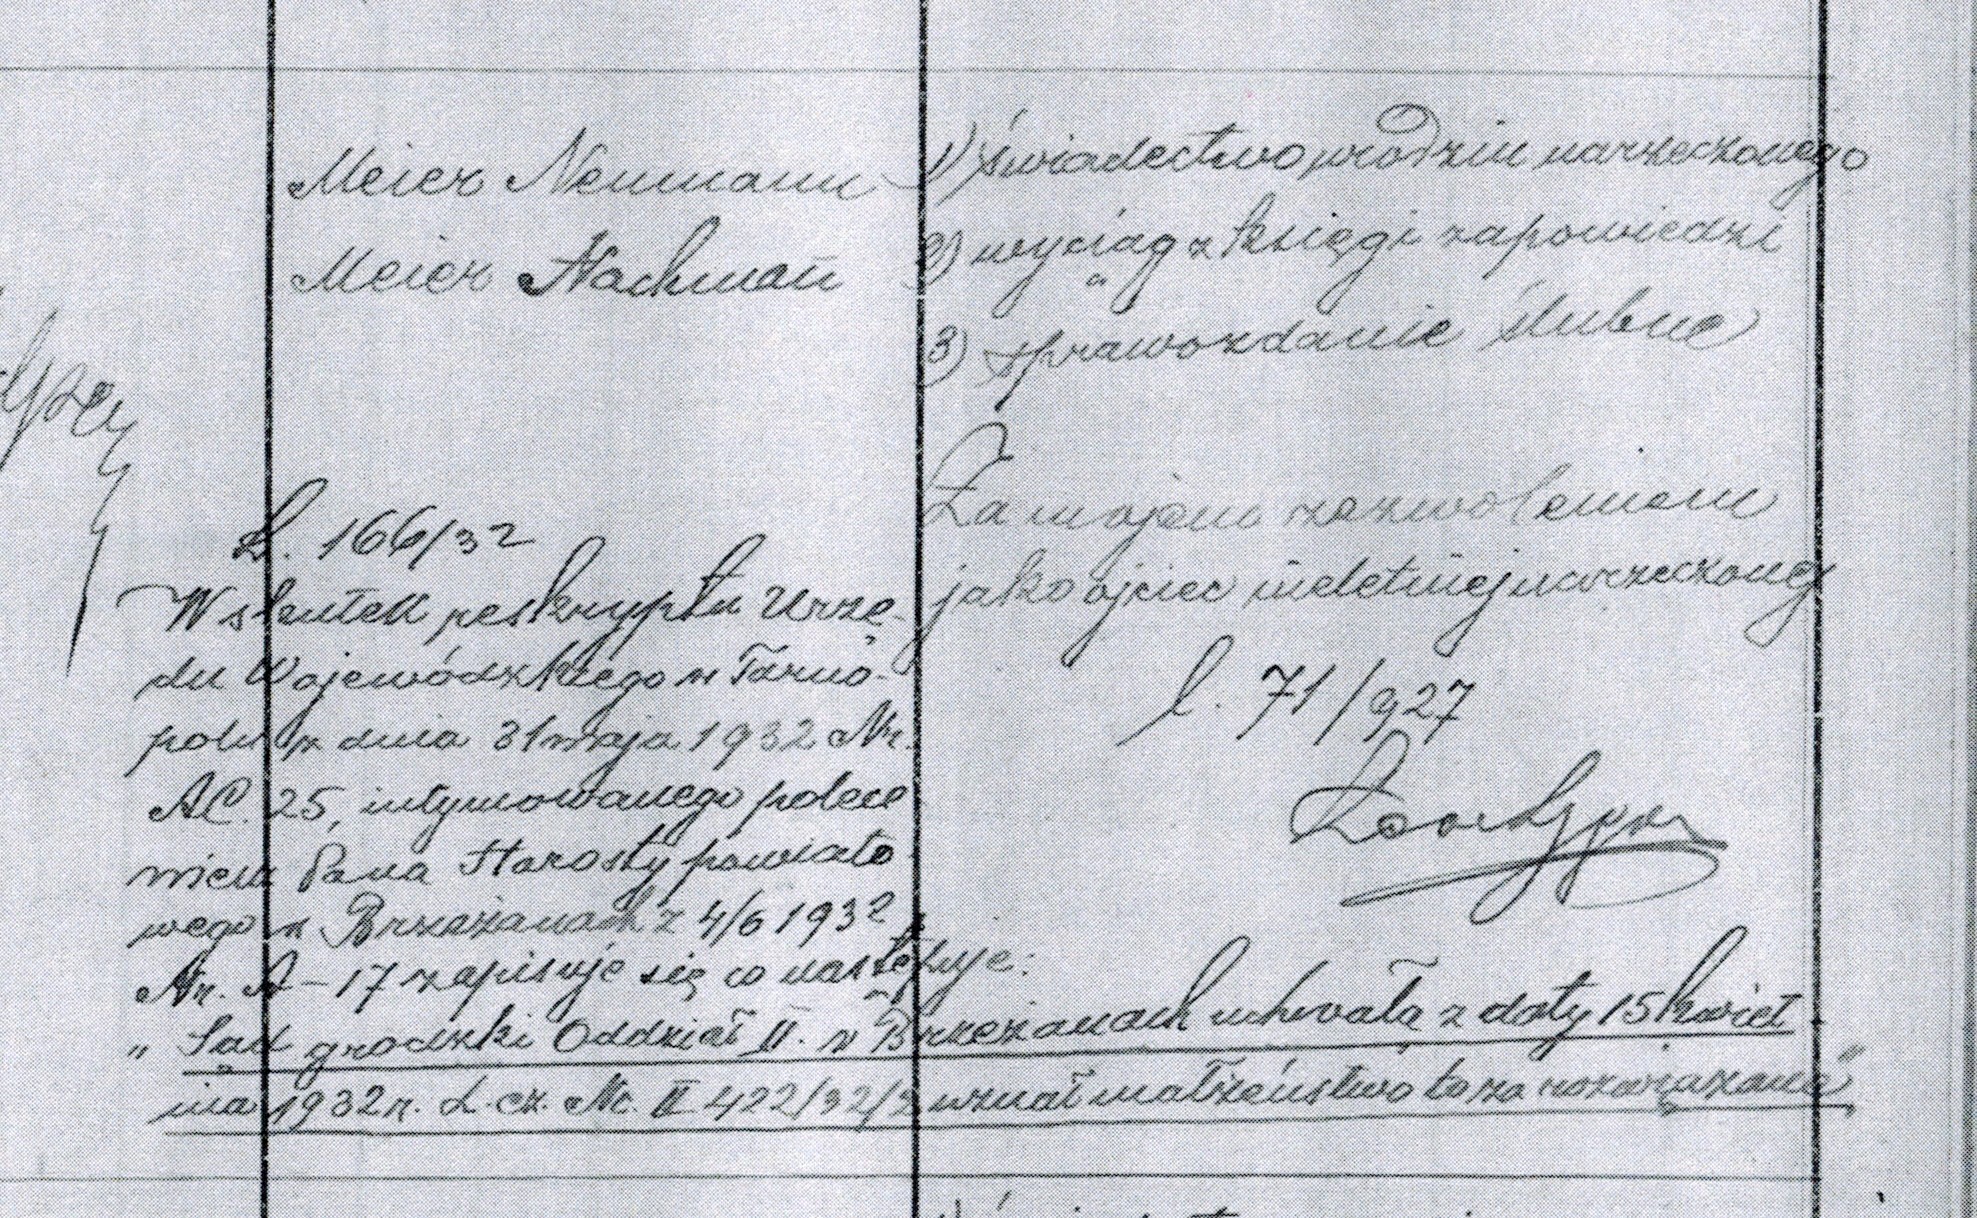 Meier Neumann
Meier Nachman
1) świadectwo urodzin narzeczonego
2) wyciąg z księgi zapowiedzi
3) sprawozdanie ślubne
Za mojem zezwoleniem
jako ojciec nieletniej narzeczonej
l. 71/927
L. 166/32
Wskutek reskryptu Urzę-
du Wojewódzkiego w Tarno-
polu z dnia 31 maja 1932 Nr.
AC. 25, intymowanego polece
niem Pana Starosty powiato-
wego w Brzeżanach z 4/6 1932
Nr. A-17 zapisuje się co następuje:
„Sąd grodzki Oddział II. w Brzeżanach uchwałą z daty 15 kwiet-
nia 1932 r. L. cz. Nc. II 422/32/3 uznał małżeństwo to za rozwiązane"